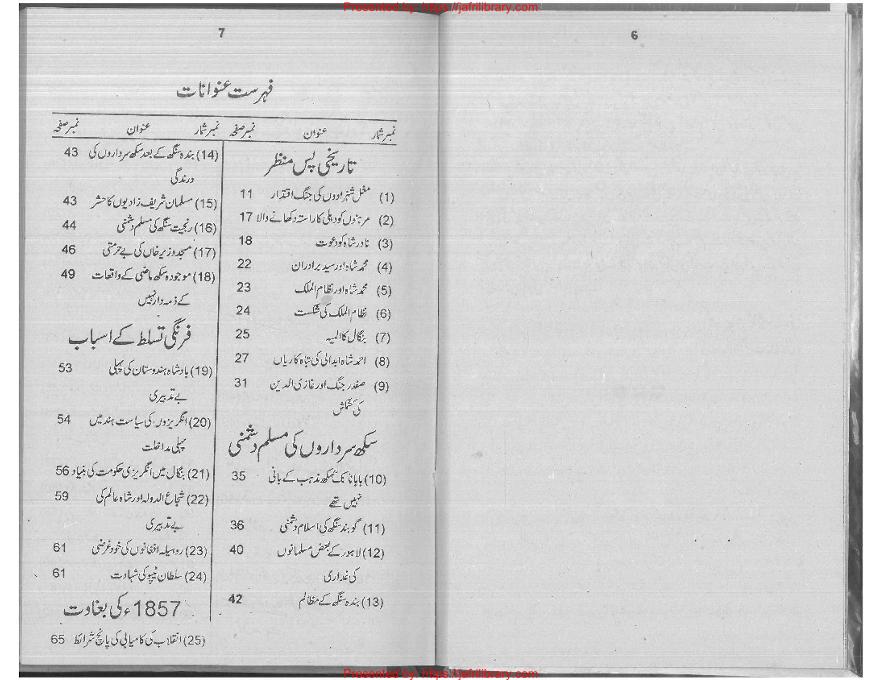 Presented by: https://jafrilibrary.com
6
7
فہرست عنوانات
نمبر شمار عنوان نمبر صفحہ
تاریخی پس منظر
(1) مغل شہزادوں کی جنگ اقتدار 11
(2) مرہٹوں کو دہلی کا راستہ دکھانے والا 17
(3) نادر شاہ کو دعوت 18
(4) محمد شاہ اور سید برادران 22
(5) محمد شاہ اور نظام الملک 23
(6) نظام الملک کی شکست 24
(7) بنگال کا المیہ 25
(8) احمد شاہ ابدالی کی تباہ کاریاں 27
(9) صفدر جنگ اور غازی الدین 31
کی کشمکش
سکھ سرداروں کی مسلم دشمنی
(10) بابا نانک سکھ مذہب کے بانی 35
نہیں تھے
(11) گوبند سنگھ کی اسلام دشمنی 36
(12) لاہور کے بعض مسلمانوں 40
کی غداری
(13) بندہ سنگھ کے مظالم 42
نمبر شمار عنوان نمبر صفحہ
(14) بندہ سنگھ کے بعد سکھ سرداروں کی 43
درندگی
(15) مسلمان شریف زادیوں کا حشر 43
(16) رنجیت سنگھ کی مسلم دشمنی 44
(17) مسجد وزیر خاں کی بے حرمتی 46
(18) موجودہ سکھ ماضی کے واقعات 49
کے ذمہ دار نہیں
فرنگی تسلط کے اسباب
(19) بادشاہ ہندوستان کی پہلی 53
بے تدبیری
(20) انگریزوں کی سیاست ہند میں 54
پہلی مداخلت
(21) بنگال میں انگریزی حکومت کی بنیاد 56
(22) شجاع الدولہ اور شاہ عالم کی 59
بے تدبیری
(23) روہیلہ افغانوں کی خود غرضی 61
(24) سلطان ٹیپو کی شہادت 61
1857ء کی بغاوت
(25) انقلاب کی کامیابی کی پانچ شرائط 65
Presented by: https://jafrilibrary.com